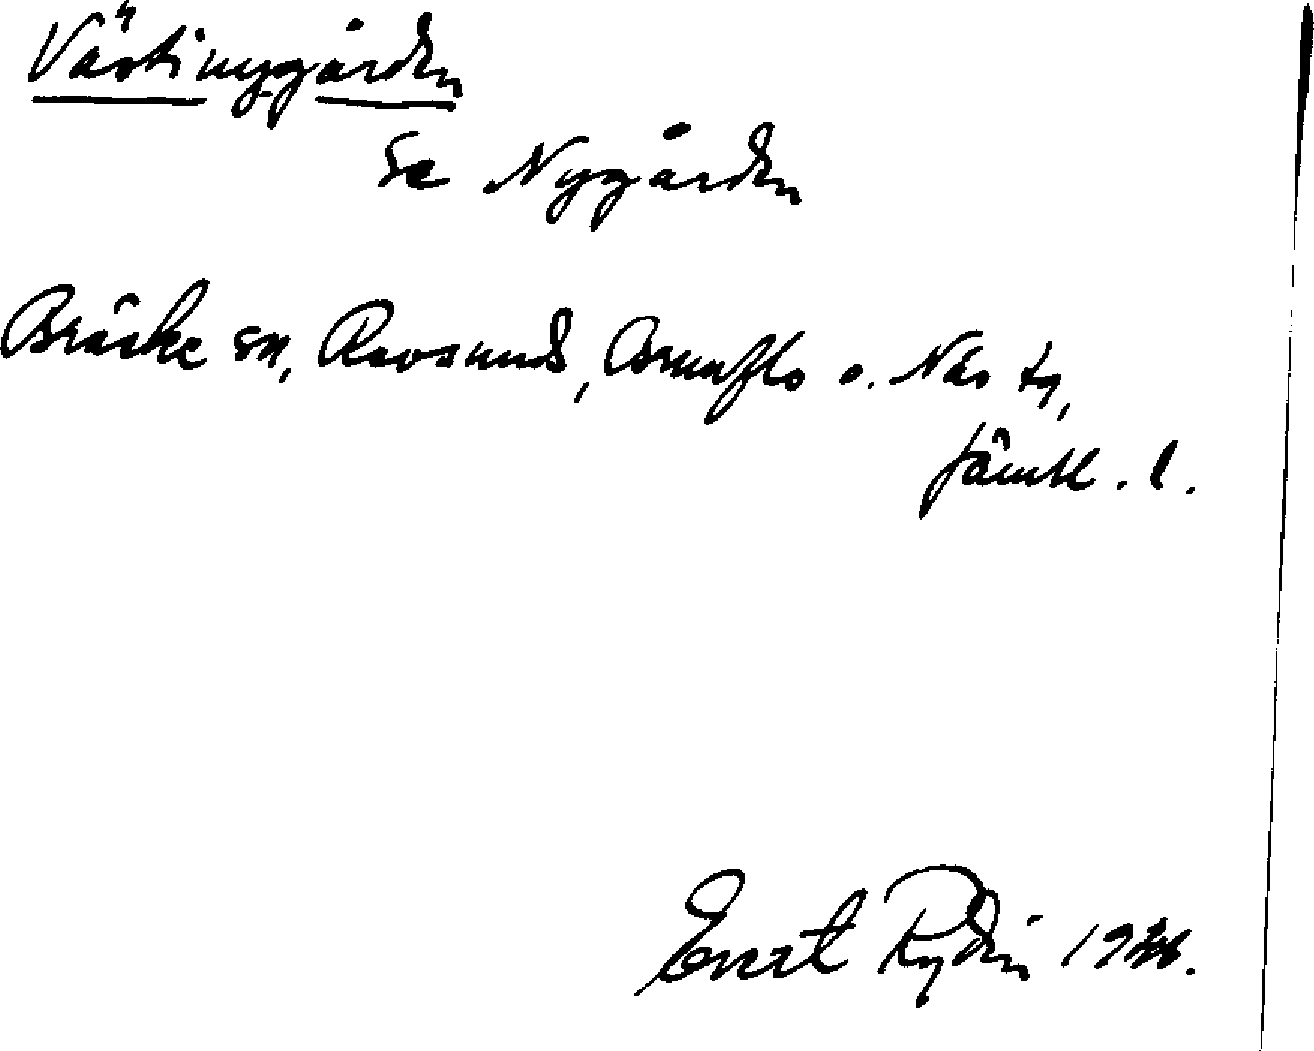 Västinygården
Se Nygården
Bräcke sn, Revsunds, Brunflo o. Näs tg,
Jämtl. l.
Evert Rydin